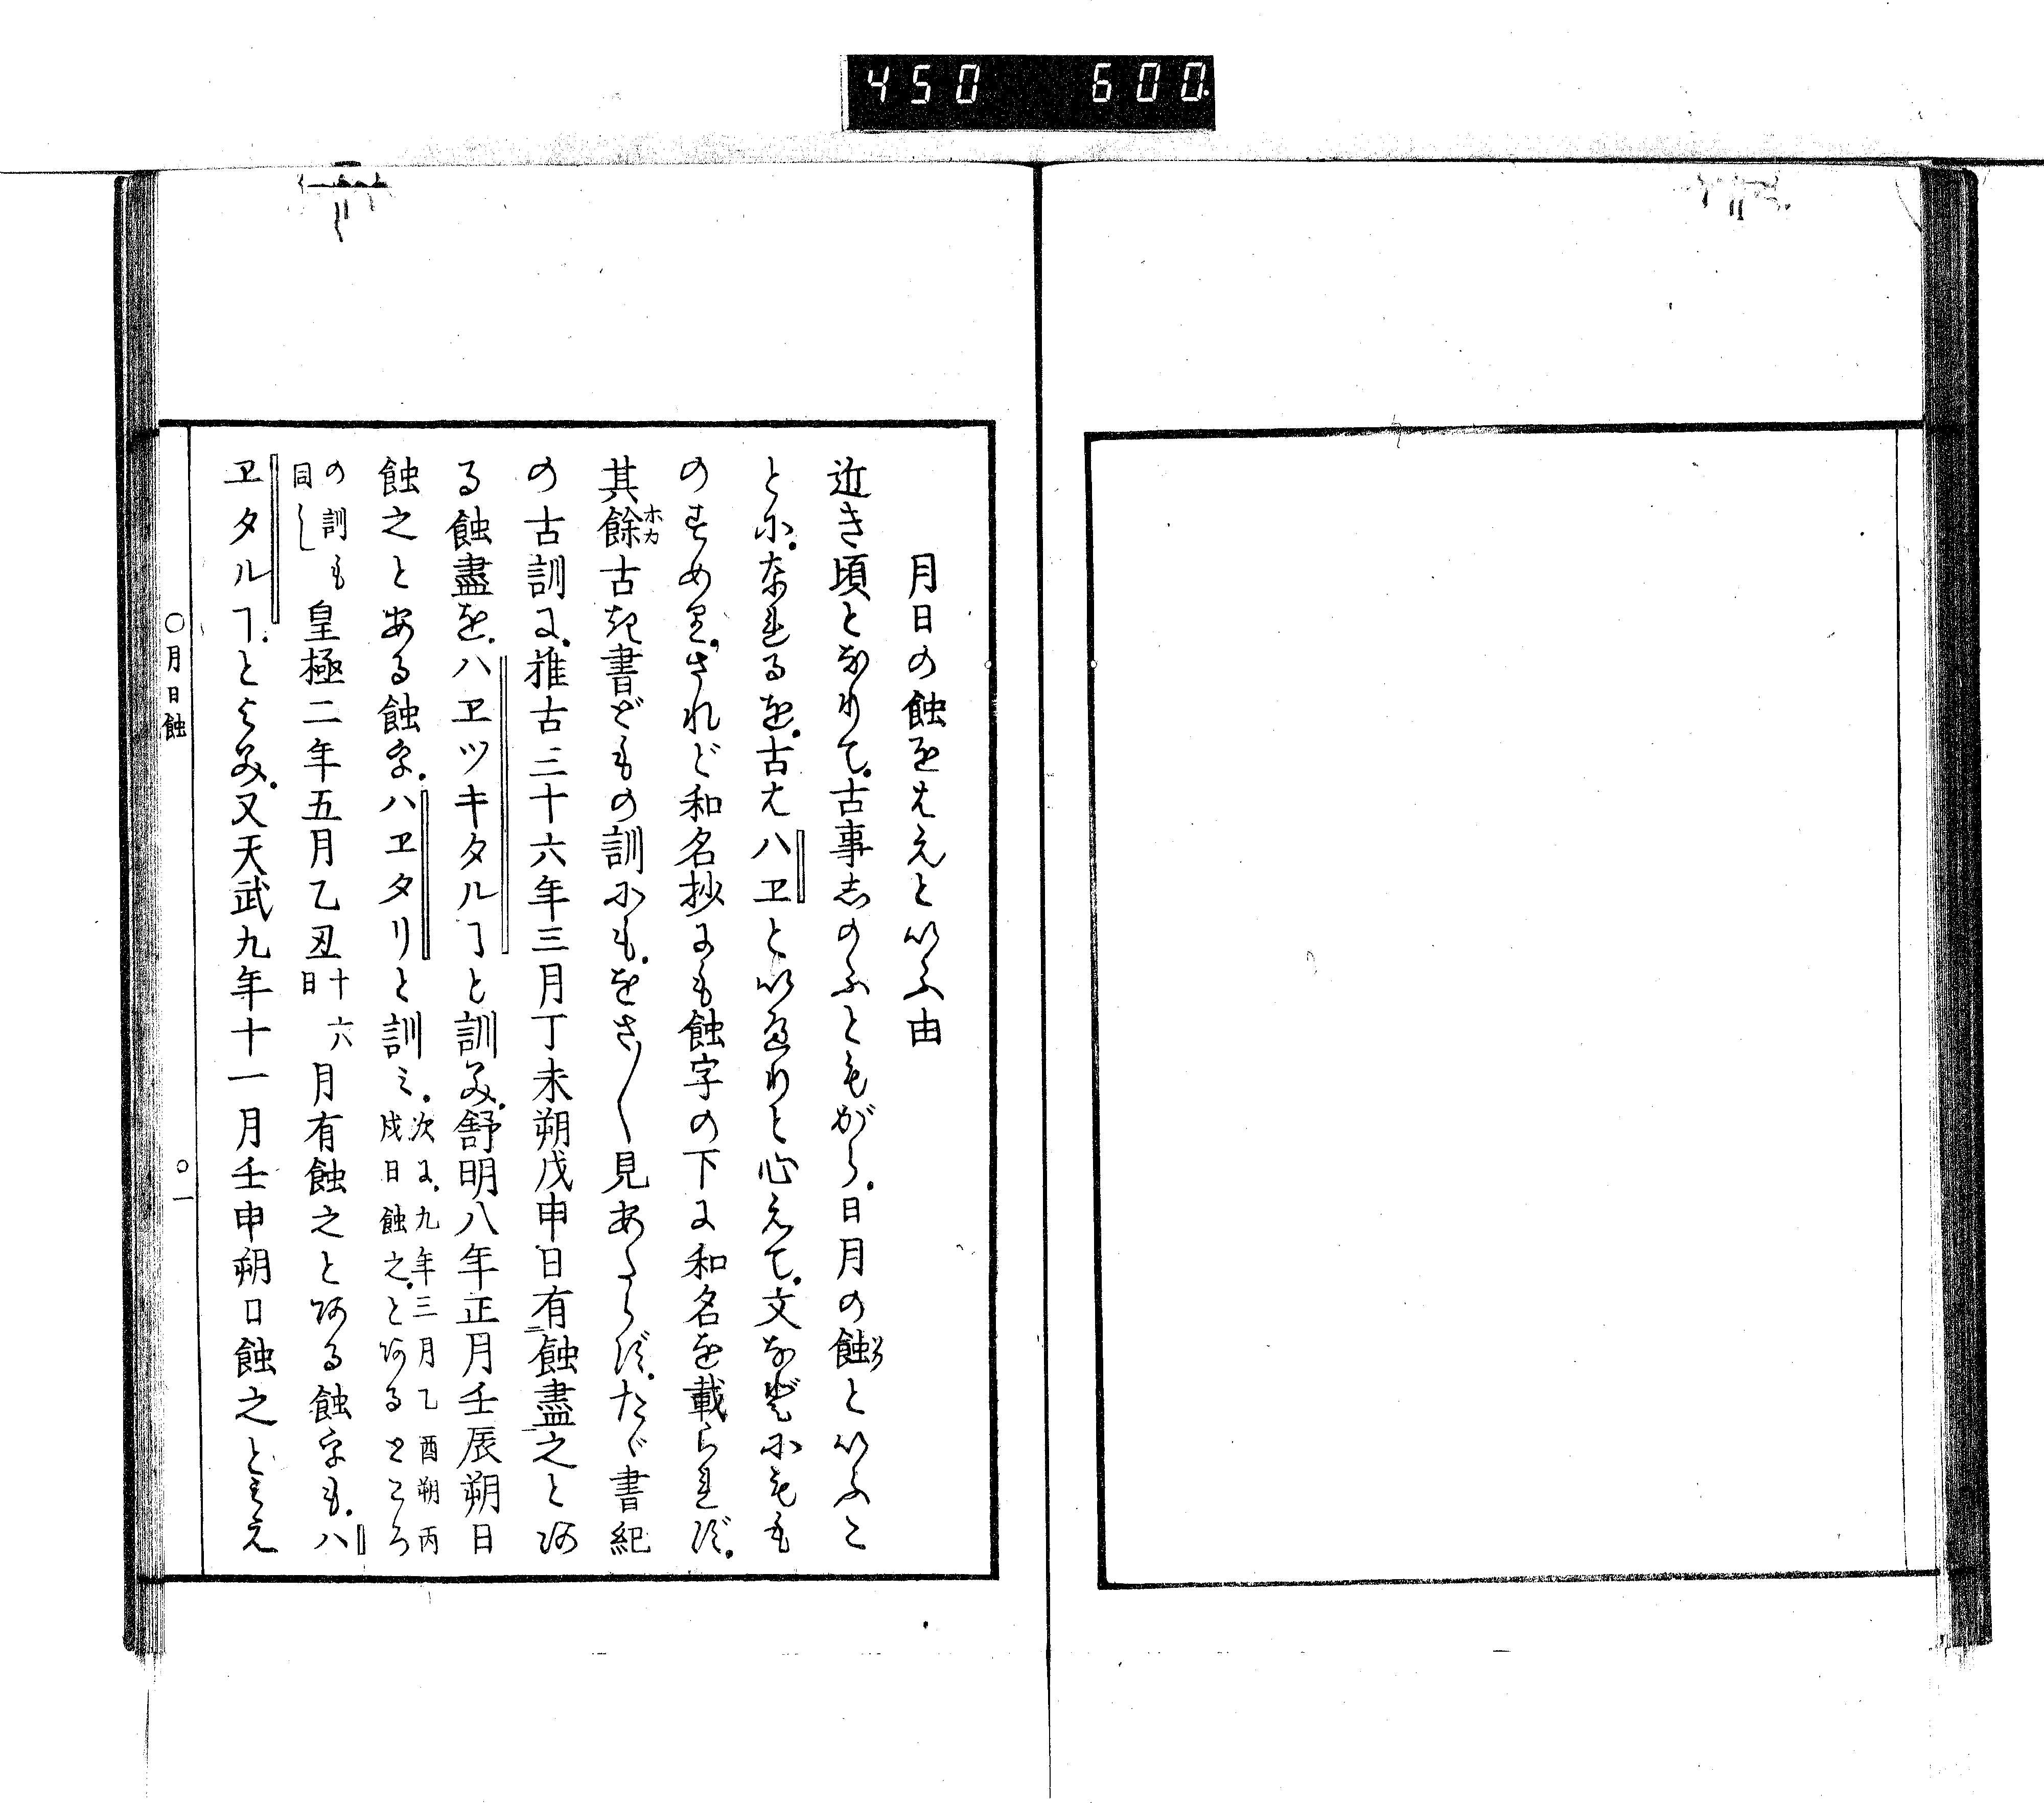 450 600.
月日の蝕をはえといふ由
近き頃となりて。古事志のふともがら。日月の蝕と いふこ
とに。なれるを。古はハヱといへりと心えて。文などにも
のすめり。されど和名抄にも蝕字の下に和名を載られず。
其餘ホカ古き書どもの訓にも。をさ〳〵見あたらず。たゞ書紀
の古訓に。推古三十六年三月丁未朔戊申日有二蝕盡一之とあ
る蝕盡を。ハヱツキタルヿと訓み。舒明八年正月壬辰朔日
蝕之とある蝕字。ハヱタリと訓ミ。次に。九年三月乙酉朔丙戌日蝕之。とあるところ
の訓も同し皇極二年五月乙丑十六日月有蝕之とある蝕字も。ハ
ヱタルヿ。とよみ。又天武九年十一月壬申朔日蝕之とみえ
〇月日蝕
〇一